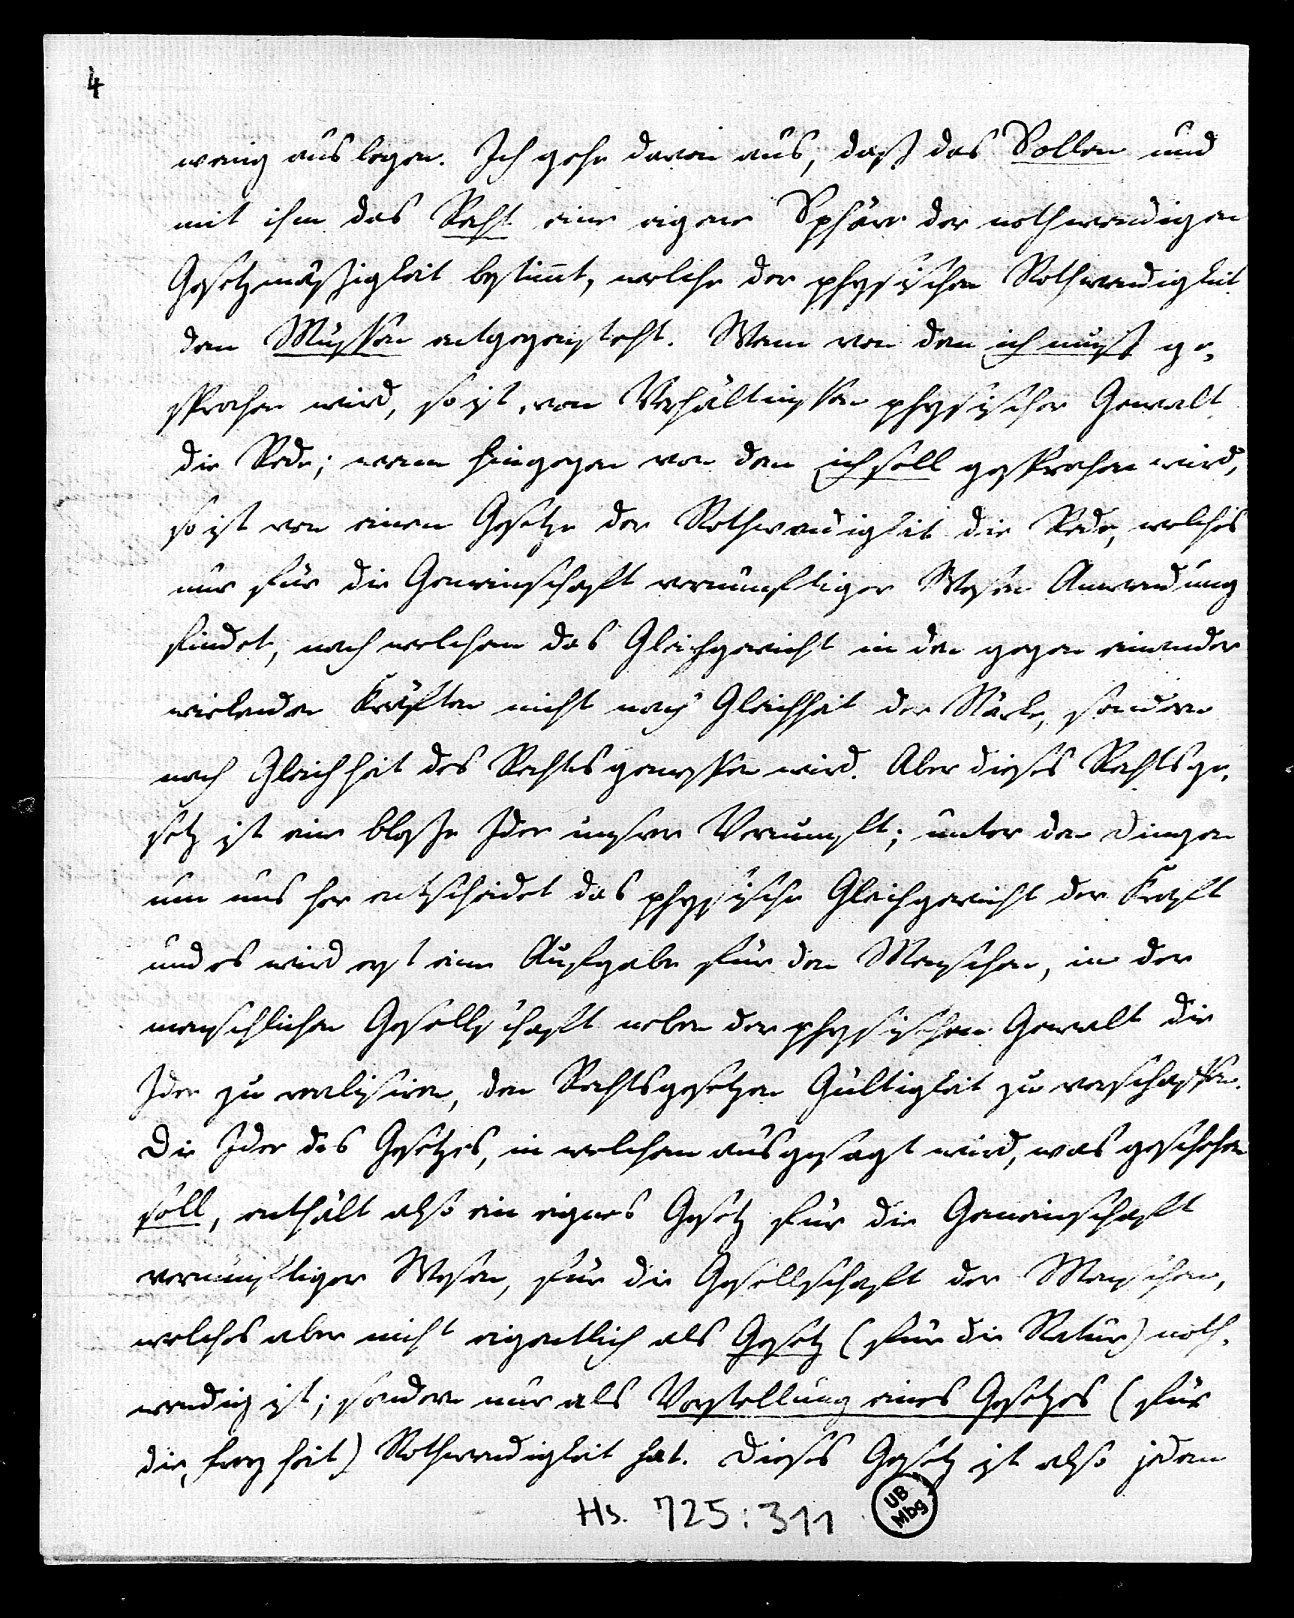 4
wenig auslegen. Ich gehe davon aus, daß das Sollen und
mit ihm das Recht eine eigene Sphäre der nothwendigen
Gesetzmäßigkeit bestimt, welche der physischen Nothwendigkeit
dem Müssen entgegensteht. Wenn von dem ich muß ge-
sprochen wird, so ist von Verhältnissen physischer Gewalt
die Rede; wenn hingegen von dem ich soll gesprochen wird,
so ist von einem Gesetze der Nothwendigkeit die Rede, welches
nur für die Gemeinschaft vernünftiger Wesen Anwendung
findet, nach welchem das Gleichgewicht in den gegen einander
wirkenden Kräften nicht nach Gleichheit der Stärke, sondern
nach Gleichheit des Rechts gemessen wird. Aber dieses Rechtsge-
setz ist eine bloße Idee unsrer Vernunft; unter den Dingen
um uns her entscheidet das physische Gleichgewicht der Kraft
und es wird erst eine Aufgabe für den Menschen, in der
menschlichen Gesellschaft neben der physischen Gewalt die
Idee zu realisiren, den Rechtsgesetzen Gültigkeit zu verschaffen.
Die Idee des Gesetzes, in welchem ausgesagt wird, was geschehen
soll, enthält also ein eignes Gesetz für die Gemeinschaft
vernünftiger Wesen, für die Gesellschaft der Menschen,
welches aber nicht eigentlich als Gesetz (für die Natur) noth-
wendig ist; sondern nur als Vorstellung eines Gesetzes (für
die Freyheit) Nothwendigkeit hat. Dieses Gesetz ist also jedem
Hs. 725:311
UB
Mbg